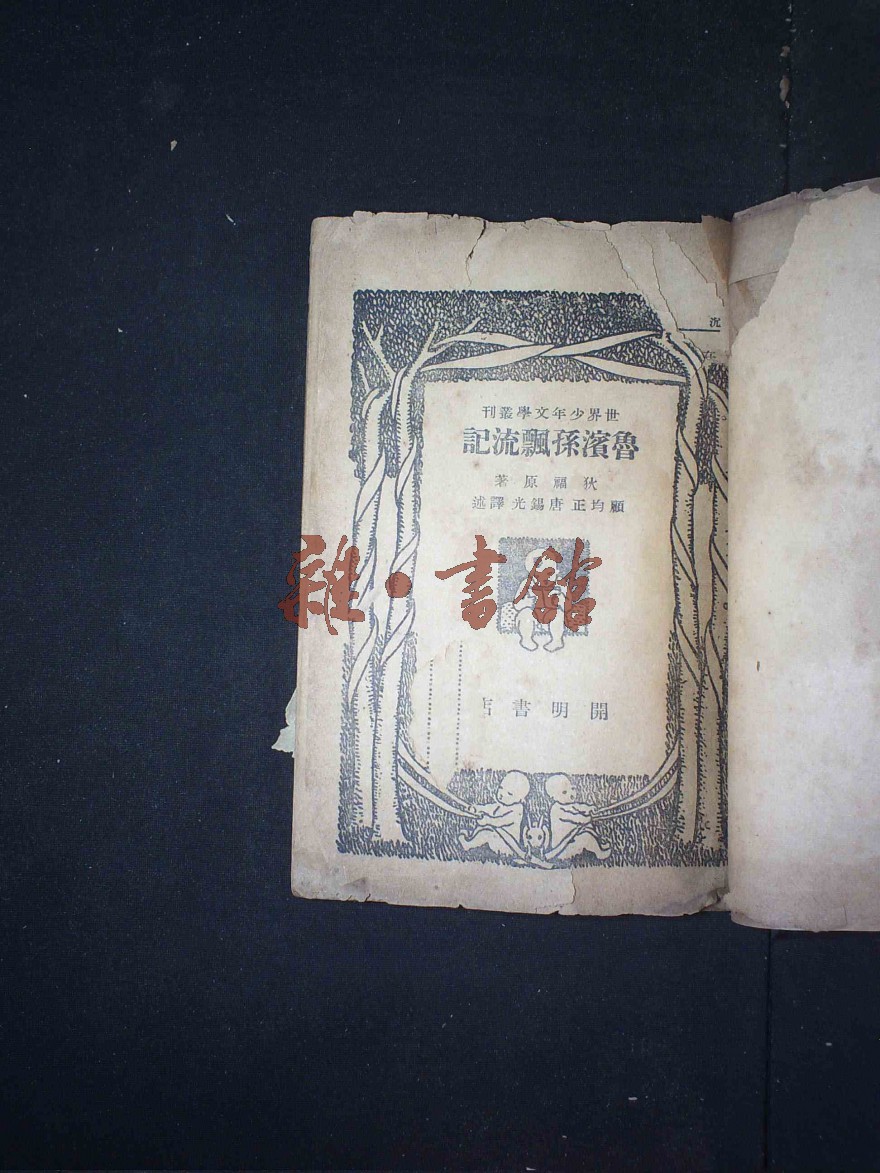 世界少年文學叢刊
魯濱孫飄流記
狄福原著
顧均正唐錫光譯述
開明書店
雜·書館
沉